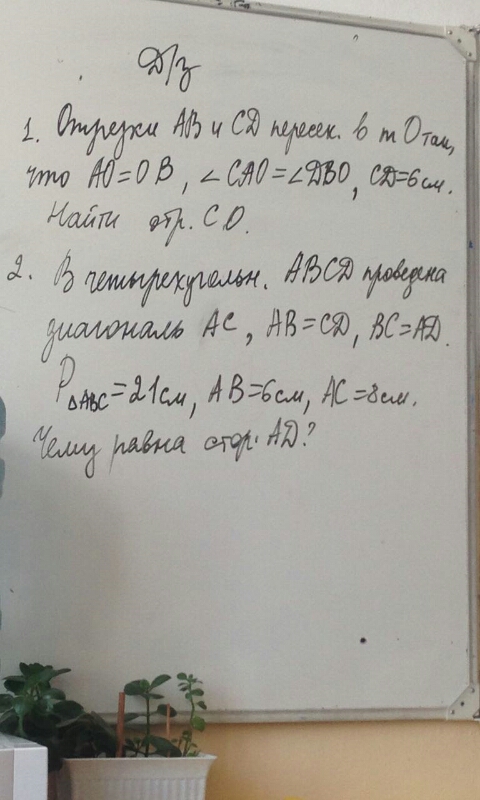 Д/з
1. Отрезки АВ и CD пересек. в т О так,
что АО=ОВ, ∠CAO=∠DBO, CD=6см.
Найти отр. СО.
2. В четырехугольн. ABCD проведена
диагональ АС, АВ=CD, BC=AD.
P△ABC=21см, АВ=6см, АС=8см.
Чему равна стор. AD?